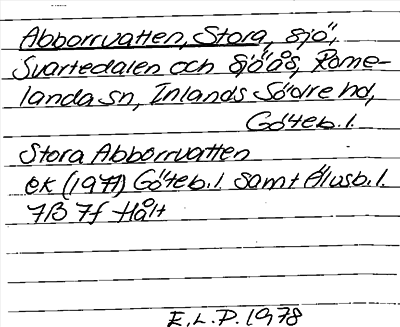 Abborrvatten, Stora, sjö,
Svartedalen och Sjöås, Rome-
landa sn, Inlands Södre hd,
Göteb.l.
Stora Abborrvatten
ek (1971) Göteb.l. samt Älvsb.l.
7B 7f Hålt
E.L.P. 1978